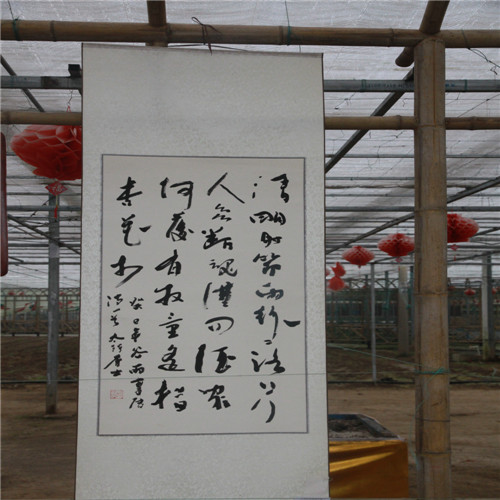 清明时节雨纷纷路上行
人欲断魂借问酒家
何处有牧童遥指
杏花村
谷雨
诗一首